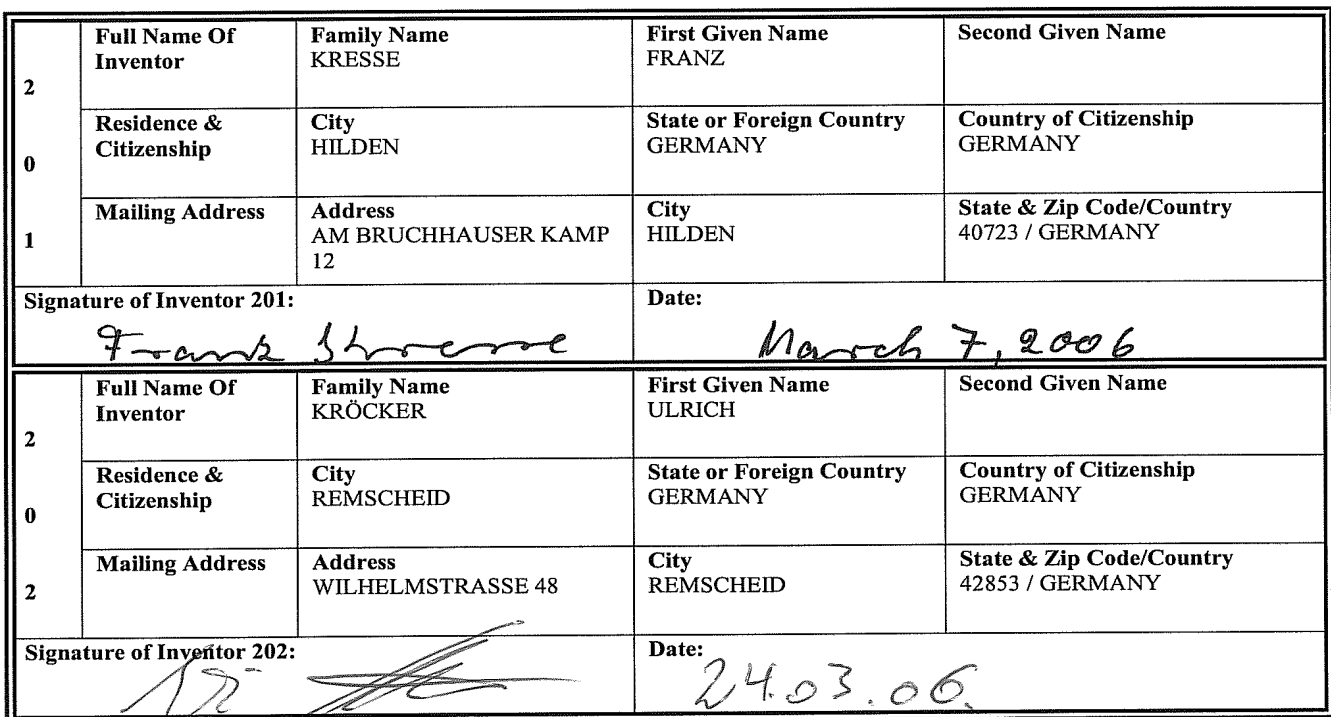 2 0 1
Full Name Of Inventor
Family Name
KRESSE
First Given Name
FRANZ
Second Given Name
Residence & Citizenship
City
HILDEN
State or Foreign Country
GERMANY
Country of Citizenship
GERMANY
Mailing Address
Address
AM BRUCHHAUSER KAMP
12
City
HILDEN
State & Zip Code/Country
40723 / GERMANY
Signature of Inventor 201:
Date:
March 7, 2006
2 0 2
Full Name Of Inventor
Family Name
KRÖCKER
First Given Name
ULRICH
Second Given Name
Residence & Citizenship
City
REMSCHEID
State or Foreign Country
GERMANY
Country of Citizenship
GERMANY
Mailing Address
Address
WILHELMSTRASSE 48
City
REMSCHEID
State & Zip Code/Country
42853 / GERMANY
Signature of Inventor 202:
Date:
24.03.06.